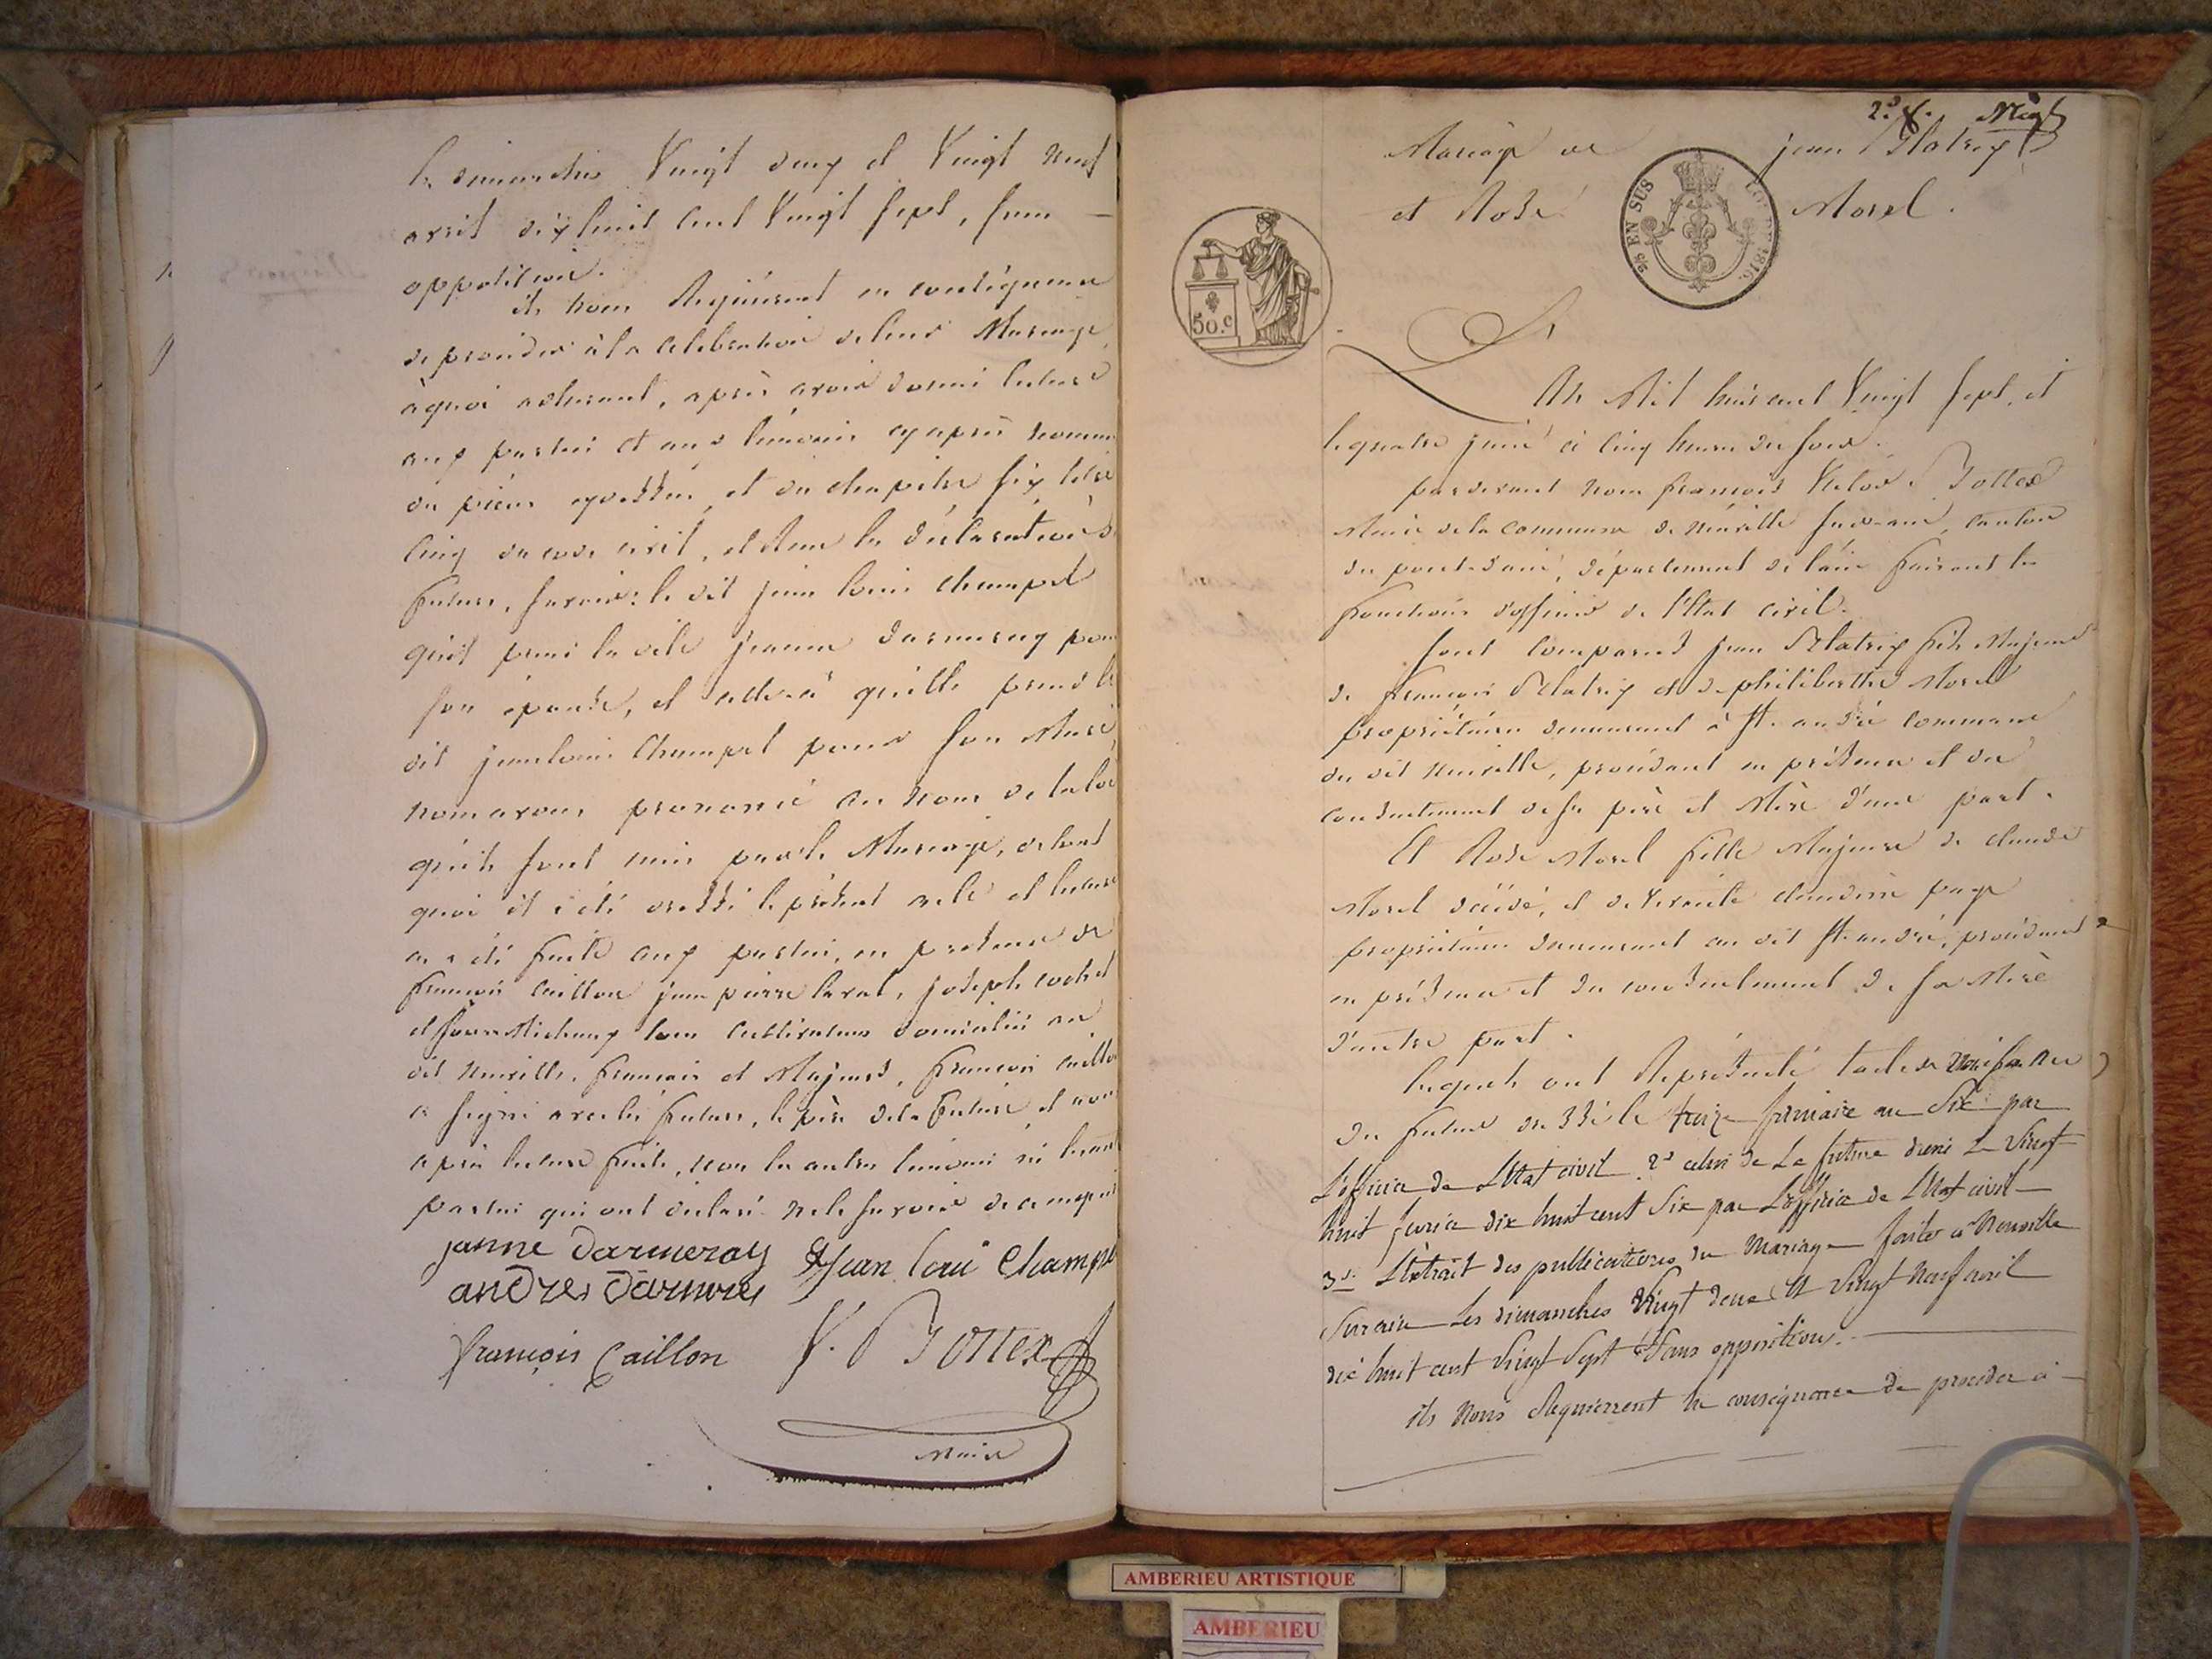 les dimanches Vingt deux et Vingt neuf
avril dix huit Cent Vingt Sept, Sans
opposition.
ils nous Requierent en conséquence
de proceder à la célébration de leur Mariage,
à quoi adherant, après avoir donné lecture
aux parties et aux témoins cy après nommés
des pièces exprimées, et du chapitre six titre
Cinq du code civil, et Reçu la déclaration des
futurs, Savoir: le dit jean louis champel
qu'il prend la dite jeanne darmeray pour
son épouse, et celle-ci qu'elle prend le
dit jean louis Champel pour Son Mari,
nous avons prononcé au nom de la loi
qu'ils Sont unis par le Mariage, de tout
quoi il a été dressé le présent acte et lecture
en a été faite aux parties, en présence de
françois caillon jean pierre laval, joseph cochet
et Michaux tous cultivateurs domiciliés au
dit Neuville, français et Majeurs, françois caillon
a Signé avec les futurs, le père de la future, et nous
après lecture faite, non les autres témoins ni leurs
parties qui ont déclaré ne le Savoir de ce requis
janne darmeray Jean loui Champel
andres darmrey
françois Caillon V. Bottex
Maire
2.d
Mariage de jean Delatrix
et Rose Morel.
EN SUS
LOI DE 1816.
50.c
L'An Mil huit cent Vingt Sept, et
le quatre juin à Cinq heures du Soir.
pardevant nous françois Victor Bottex
Maire de la Commune de Neuville Sur-ain, canton
du pont-d'ain, département de l'ain faisant les
fonctions d'officier de l'Etat civil.
Sont Comparus jean Delatrix fils Majeur
de françois Delatrix et de philiberthe Morel
propriétaires demeurant à St. andré commune
du dit Neuville, procédant en présence et du
consentement de ses père et Mère d'une part.
Et Rose Morel fille Majeure de claude
Morel décédé, et de vivante claudine page
propriétaire demeurant au dit St. andré, procédant
en présence et du consentement de Sa Mère
d'autre part.
lesquels ont Représenté l'acte de Naissance
du futur dressé le treize frimaire an Six par
L'officier de L'Etat civil. 2.d celui de La future dressé Le Vingt
huit fevrier dix huit cent Six par L'officier de L'Etat civil
3.d L'Extrait des publications du Mariage faites à Neuville
Sur ain Les dimanches Vingt deux Et Vingt Neuf avril
dix huit cent Vingt Sept Sans opposition.
ils Nous Requierrent En conséquence de proceder à
AMBERIEU ARTISTIQUE
AMBERIEU